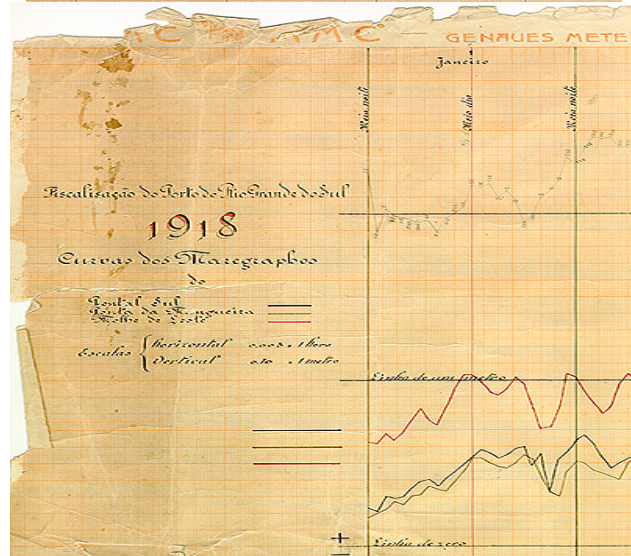 GENAUES METE
Janeiro
Meia noite
Meio dia
Meia noite
Fiscalisação do Porto do Rio Grande do Sul
1918
Curvas dos Maregraphos
do
Pontal Sul
Ponta da Mangueira
Molhe de Leste
Escalas
Horizontal 0.005 = 1 hora
Vertical 0.10 = 1 metro
Linha de um metro
Linha de zero
+
−